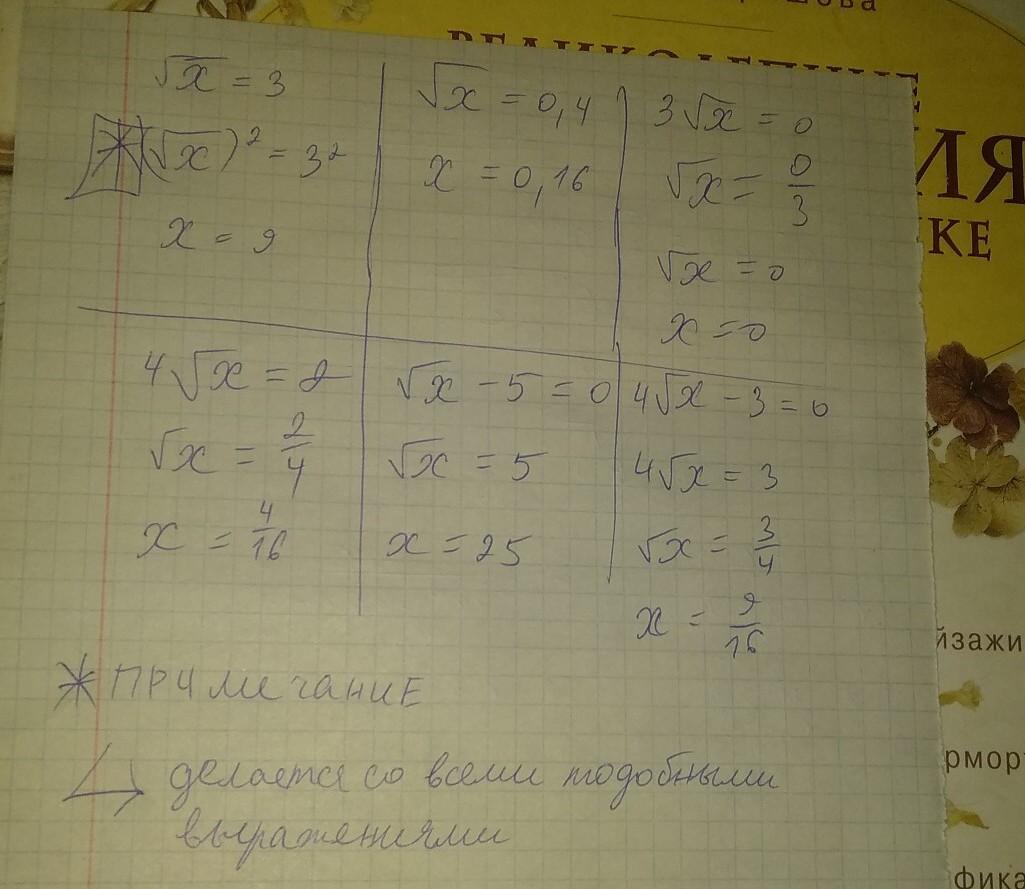 √x = 3
* (√x)² = 3²
x = 9
√x = 0,4
x = 0,16
3√x = 0
√x = 0/3
√x = 0
x = 0
4√x = 2
√x = 2/4
x = 4/16
√x - 5 = 0
√x = 5
x = 25
4√x - 3 = 0
4√x = 3
√x = 3/4
x = 9/16
* ПРИМЕЧАНИЕ
↳ делается со всеми подобными
выражениями
ВЕЛИКОЛЕПНЫЕ
ИЯ
КЕ
йзажи
рмор
фика